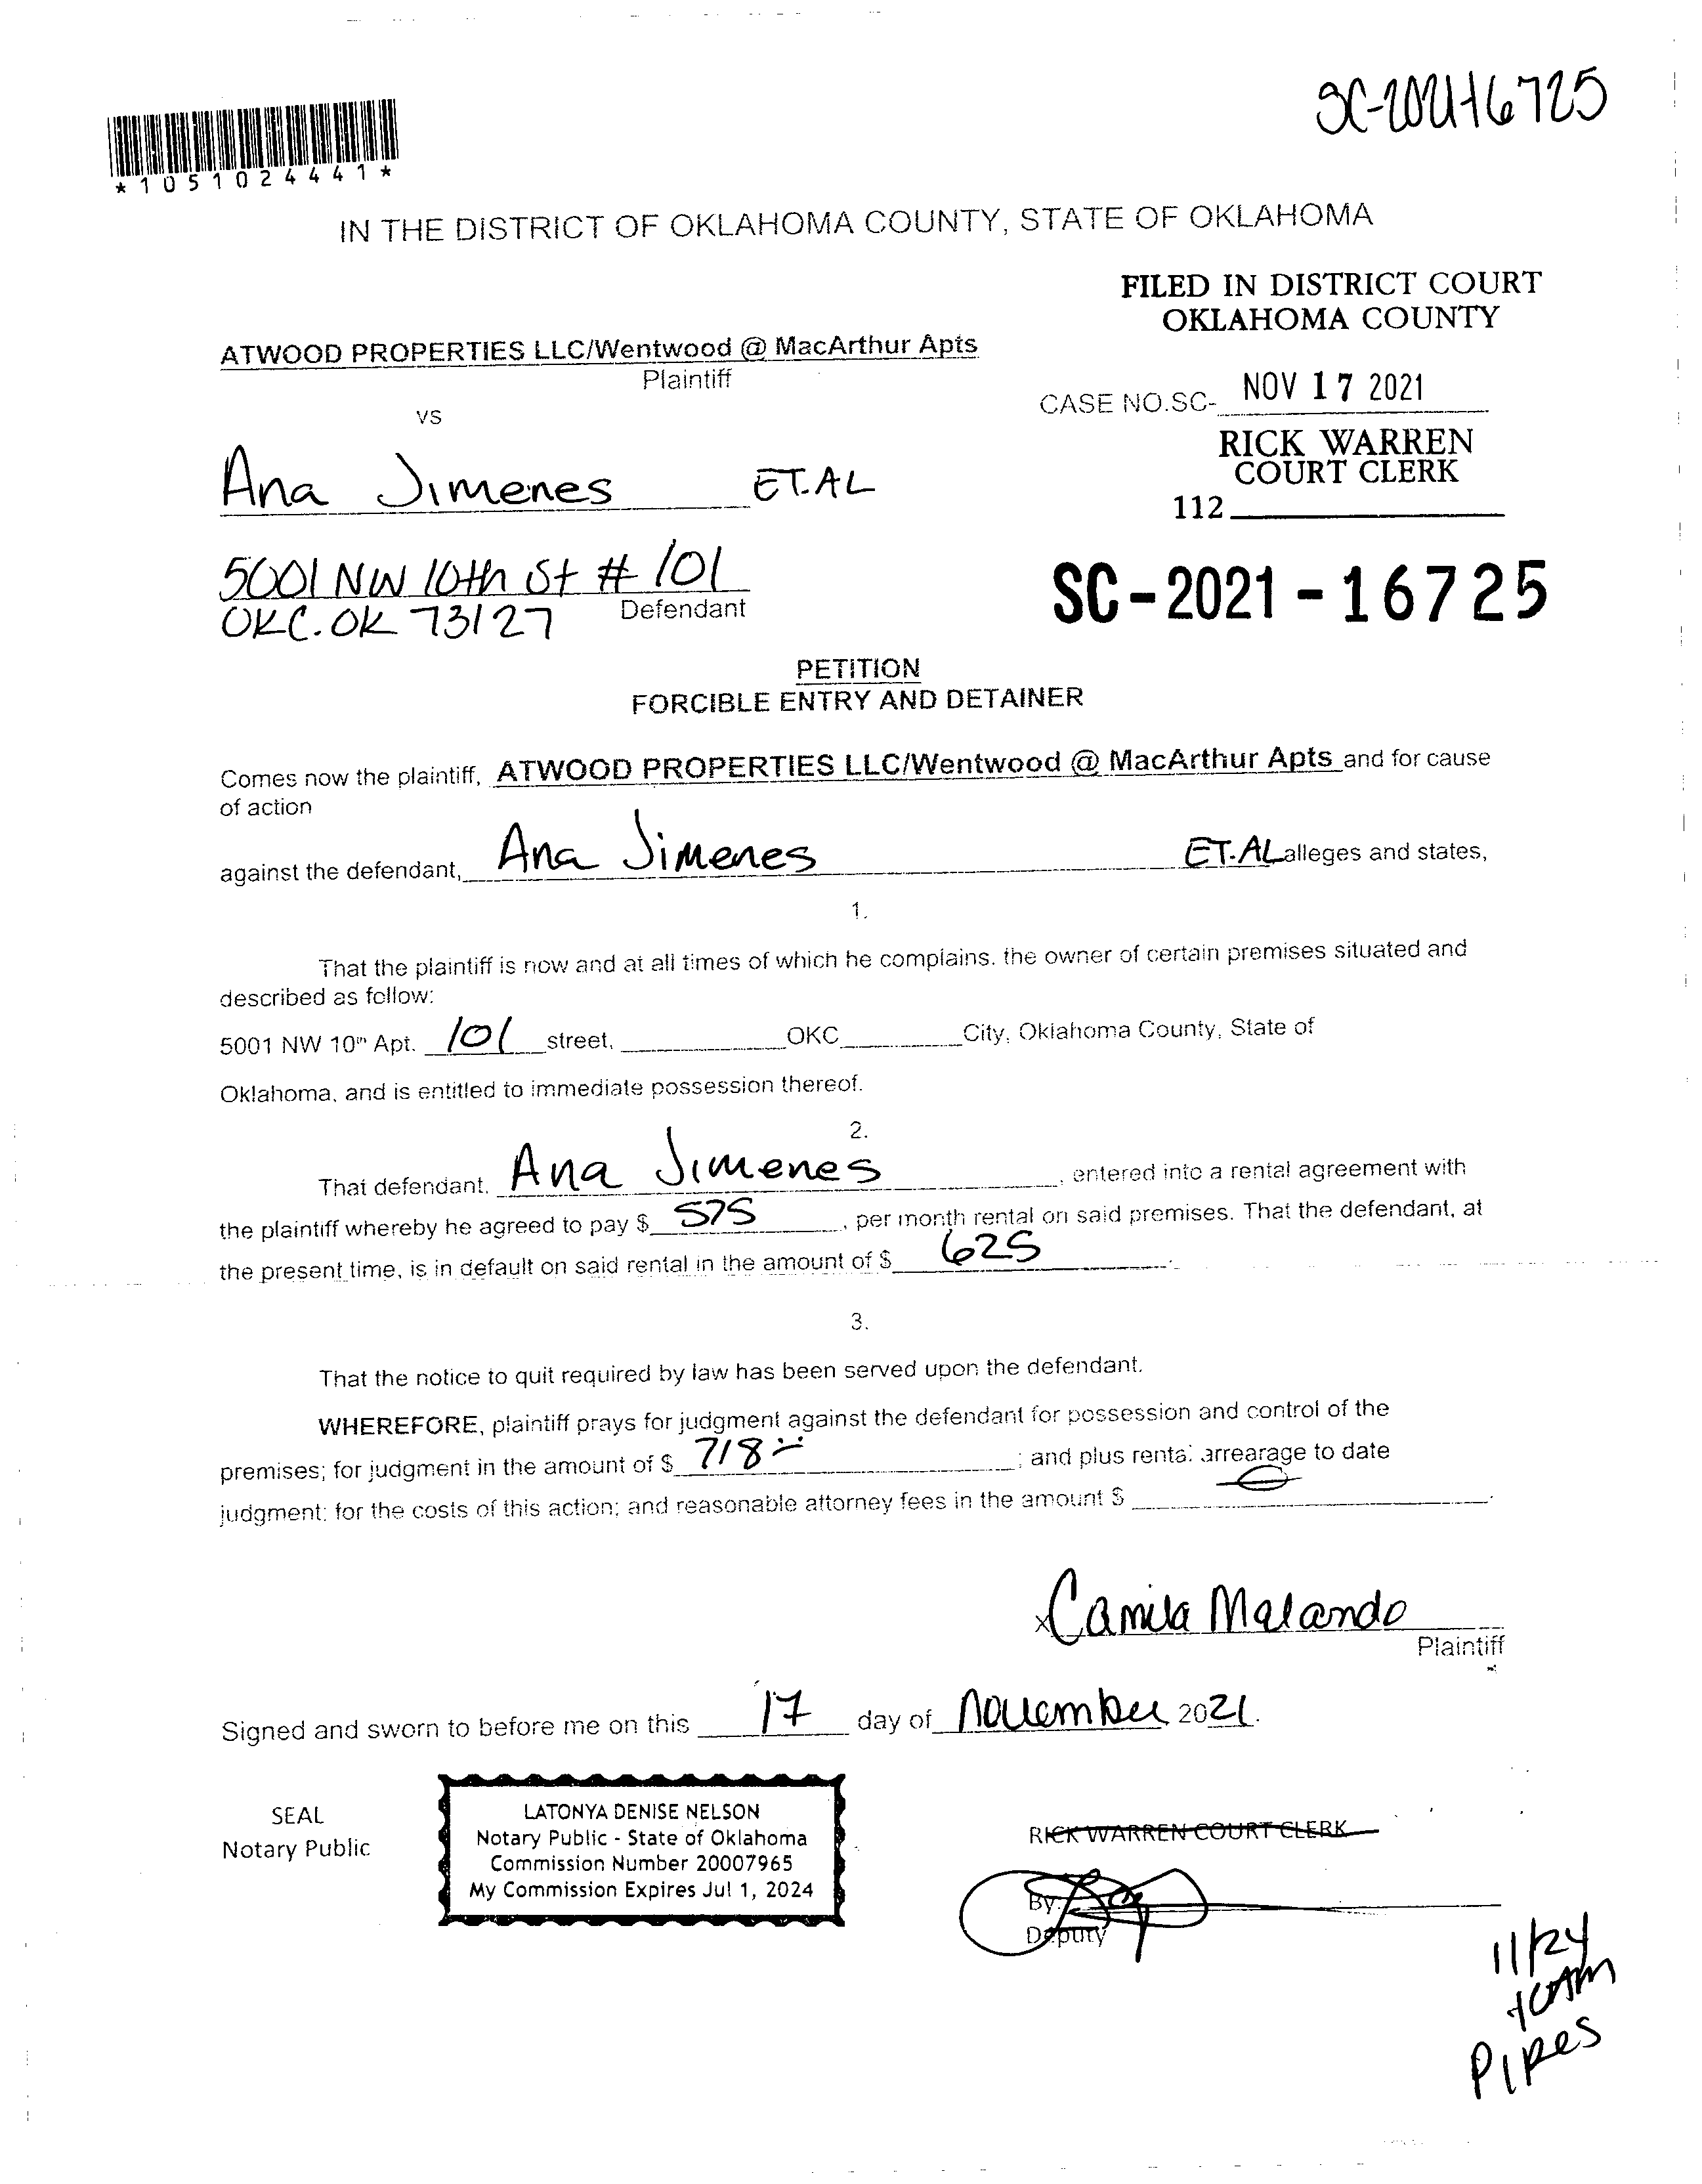 SC-2021-16725
*1051024441*
IN THE DISTRICT OF OKLAHOMA COUNTY, STATE OF OKLAHOMA
FILED IN DISTRICT COURT
OKLAHOMA COUNTY
ATWOOD PROPERTIES LLC/Wentwood @ MacArthur Apts
Plaintiff
CASE NO.SC- NOV 17 2021
vs
RICK WARREN
COURT CLERK
Ana Jimenes ET.AL
112
5001 NW 10th St # 101
OKC. OK 73127 Defendant
SC-2021-16725
PETITION
FORCIBLE ENTRY AND DETAINER
Comes now the plaintiff, ATWOOD PROPERTIES LLC/Wentwood @ MacArthur Apts and for cause
of action
against the defendant, Ana Jimenes ET.AL alleges and states,
1.
That the plaintiff is now and at all times of which he complains. the owner of certain premises situated and
described as follow:
5001 NW 10th Apt. 101 street, OKC City, Oklahoma County, State of
Oklahoma, and is entitled to immediate possession thereof.
2.
That defendant, Ana Jimenes, entered into a rental agreement with
the plaintiff whereby he agreed to pay $ 575, per month rental on said premises. That the defendant, at
the present time, is in default on said rental in the amount of $ 625.
3.
That the notice to quit required by law has been served upon the defendant.
WHEREFORE, plaintiff prays for judgment against the defendant for possession and control of the
premises; for judgment in the amount of $ 718; and plus rental arrearage to date
judgment; for the costs of this action; and reasonable attorney fees in the amount $
x Camila Malando
Plaintiff
Signed and sworn to before me on this 17 day of november 2021.
SEAL
Notary Public
LATONYA DENISE NELSON
Notary Public - State of Oklahoma
Commission Number 20007965
My Commission Expires Jul 1, 2024
RICK WARREN COURT CLERK
By:
Deputy
11/24
10AM
PIPES